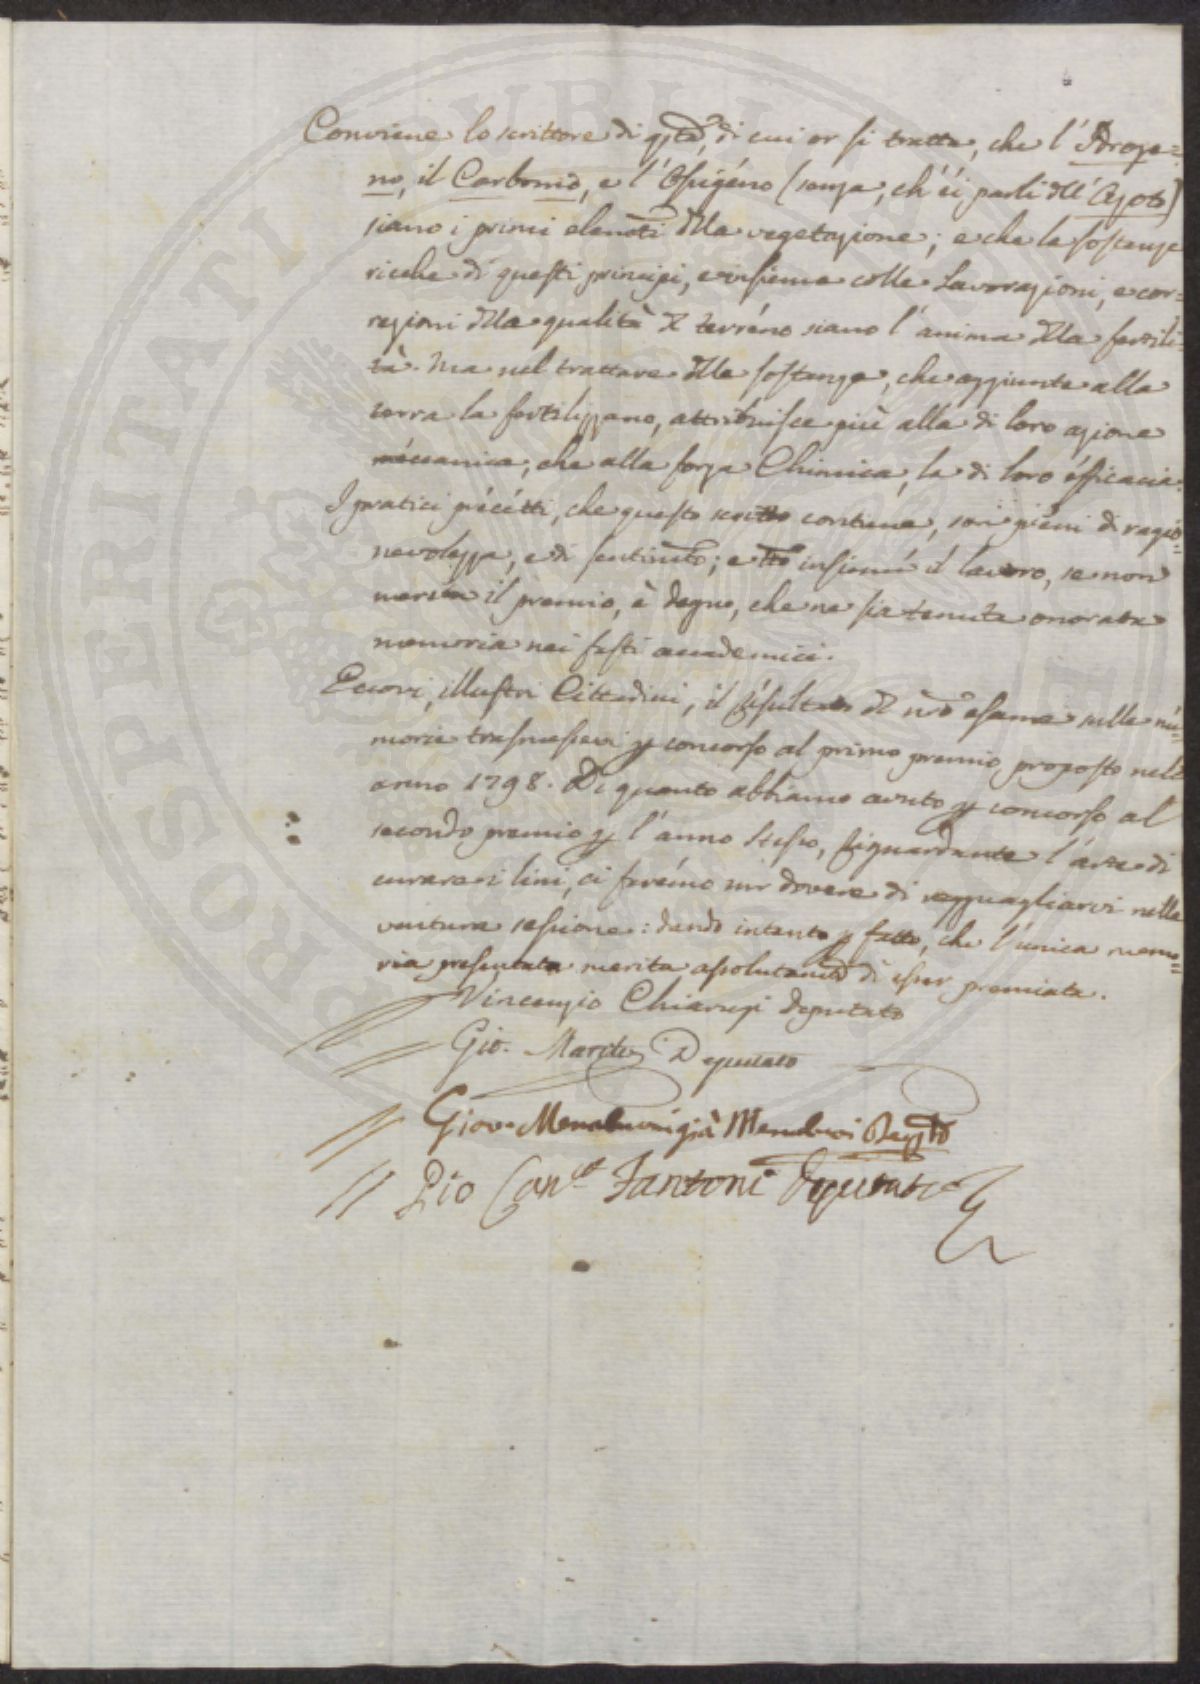 Conviene lo scrittore di qsta, di cui or si tratta, che l'Idroge=
no, il Carbonio, e l'Ossigéno (senza, ch'ei parli dell'Azoto)
siano i primi elemti della vegetazione; e che le sostanze
ricche di questi principj, e insieme colle Lavorazioni, e cor=
rezioni della qualità del terréno siano l'anima della fertili=
tà. Ma nel trattare delle sostanze, che aggiunte alla
terra la fertilizzano, attribuisce più alla di loro azione
méccanica, che alla forza Chimica, la di loro éfficacia.
I pratici précétti, che questo scritto contiene, son piéni di ragio=
nevolezza, e di sentimto; e tto insiemé il lavoro, se non
merita il premio, è degno, che ne sia tenuta onorata
memoria nei fasti accademici.
Eccovi, illustri Cittadini, il résultato del nro esame sulle mé=
morie trasmessevi p concorso al primo premio proposto nell'
anno 1798. Di quanto abbiamo avuto p concorso al
secondo premio p l'anno stesso, riguardante l'arte di
curare i lini, ci farémo un dovere di ragguagliarvi nella
ventura sessione: dando intanto p fatto, che l'unica memo=
ria presentata merita assolutamte di esser premiata.
Vincenzio Chiarugi deputato
Gio. Mariti Deputato
Giov. Menabuoni già Menabuoi Depto
Pio Can.co Fantoni Deputato